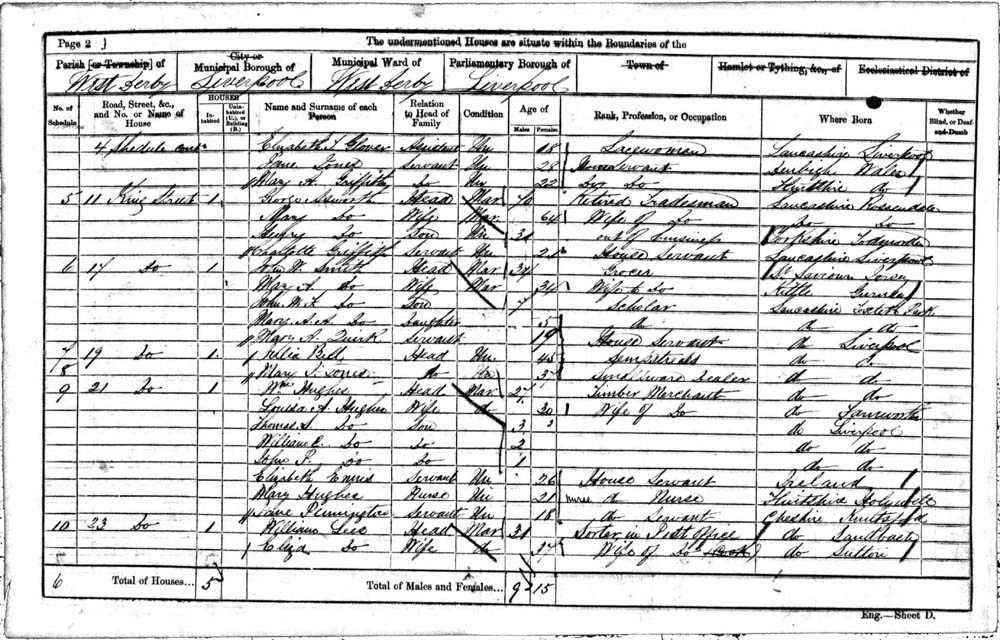 Page 2 }
The undermentioned Houses are situate within the Boundaries of the
Parish [or Township] of
City or Municipal Borough of
Municipal Ward of
Parliamentary Borough of
Town of
Hamlet or Tything, &c., of
Ecclesiastical District of
West Derby Liverpool West Derby Liverpool
No. of Schedule
Road, Street, &c., and No. or Name of House
HOUSES
Inhabited
Uninhabited (U.), or Building (B.)
Name and Surname of each Person
Relation to Head of Family
Condition
Age of
Males Females
Rank, Profession, or Occupation
Where Born
Whether Blind, or Deaf-and-Dumb
4 Shedule Elizabeth Glover Assistant Un 18 Lancashire Liverpool
Jane Jones Servant Un 28 Denbigh Wales
Mary A. Griffiths Do Un 22 Do Do Flintshire do
5 11 King Street 1 George Head Mar 70 Retired Tradesman Lancashire Rossendale
Mary Do Wife Mar 64 Wife of Do Do Do
Henry Do Son Un out of business Yorkshire Todmorden
Charlotte Griffith Servant Un House Servant Lancashire Liverpool
6 17 Do 1 John W. Smith Head Mar 34 Grocer St Saviour Jersey
Mary A. do Wife Mar 34 Wife to Do
John W. Do Son 7 Scholar Lancashire Toxteth Park
Mary A. A. Do Daughter 5 do do do
Mary A. Quirk Servant 19 House Servant do Liverpool
7 19 Do 1 Bell Head Un 45 Sempstress do Do
8 Mary Jones do 37 Smallware Dealer do do
9 21 Do 1 Wm Hughes Head Mar 27 Timber Merchant do do
Louisa A. Hughes Wife do Wife of Do do
Thomas Do Son 3 do Liverpool
William Do Do 2 do do
John Do Do 1 do do
Elizabeth Servant Un 26 House Servant Ireland
Mary Hughes Nurse Un 21 Nurse do Nurse Flintshire
Jane Servant Un 18 do Servant Cheshire Knutsford
10 23 Do 1 William Head Mar 31 Sorter in Post Office do Sandbach
Eliza Do Wife do Wife of Do (Cook) do Sutton
6 Total of Houses... 5
Total of Males and Females... 9 15
Eng.—Sheet D.